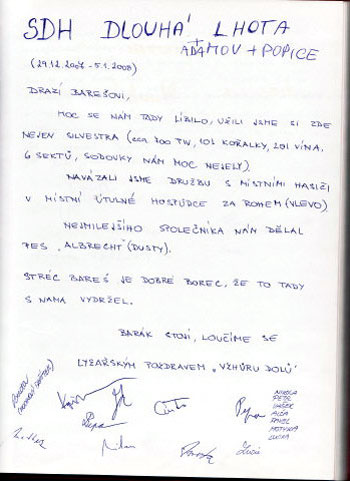 SDH DLOUHÁ LHOTA
+
ADAMOV + POPICE
(29.12.2007 - 5.1.2008)
DRAZÍ BAREŠOVI,
MOC SE NÁM TADY LÍBILO, UŽILI JSME SI ZDE
NEJEN SILVESTRA (CCA 200 TW, 10L KOŘALKY, 20L VÍNA,
6 SEKTŮ, SODOVKY NÁM MOC NEJELY).
NAVÁZALI JSME DRUŽBU S MÍSTNÍMI HASIČI
V MÍSTNÍ ÚTULNÉ HOSPŮDCE ZA ROHEM (VLEVO).
NEJMILEJŠÍHO SPOLEČNÍKA NÁM DĚLAL
PES „ALBRECHT" (DUSTY).
STRÉC BAREŠ JE DOBRÉ BOREC, ŽE TO TADY
S NAMA VYDRŽEL.
BARÁK STOJÍ, LOUČÍME SE
LYŽAŘSKÝM POZDRAVEM „VZHŮRU DOLŮ"
NIKOLA
PETR
VAŠEK
ALČA
PAVEL
MOTYKA
LUCKA
Milan
Lucie